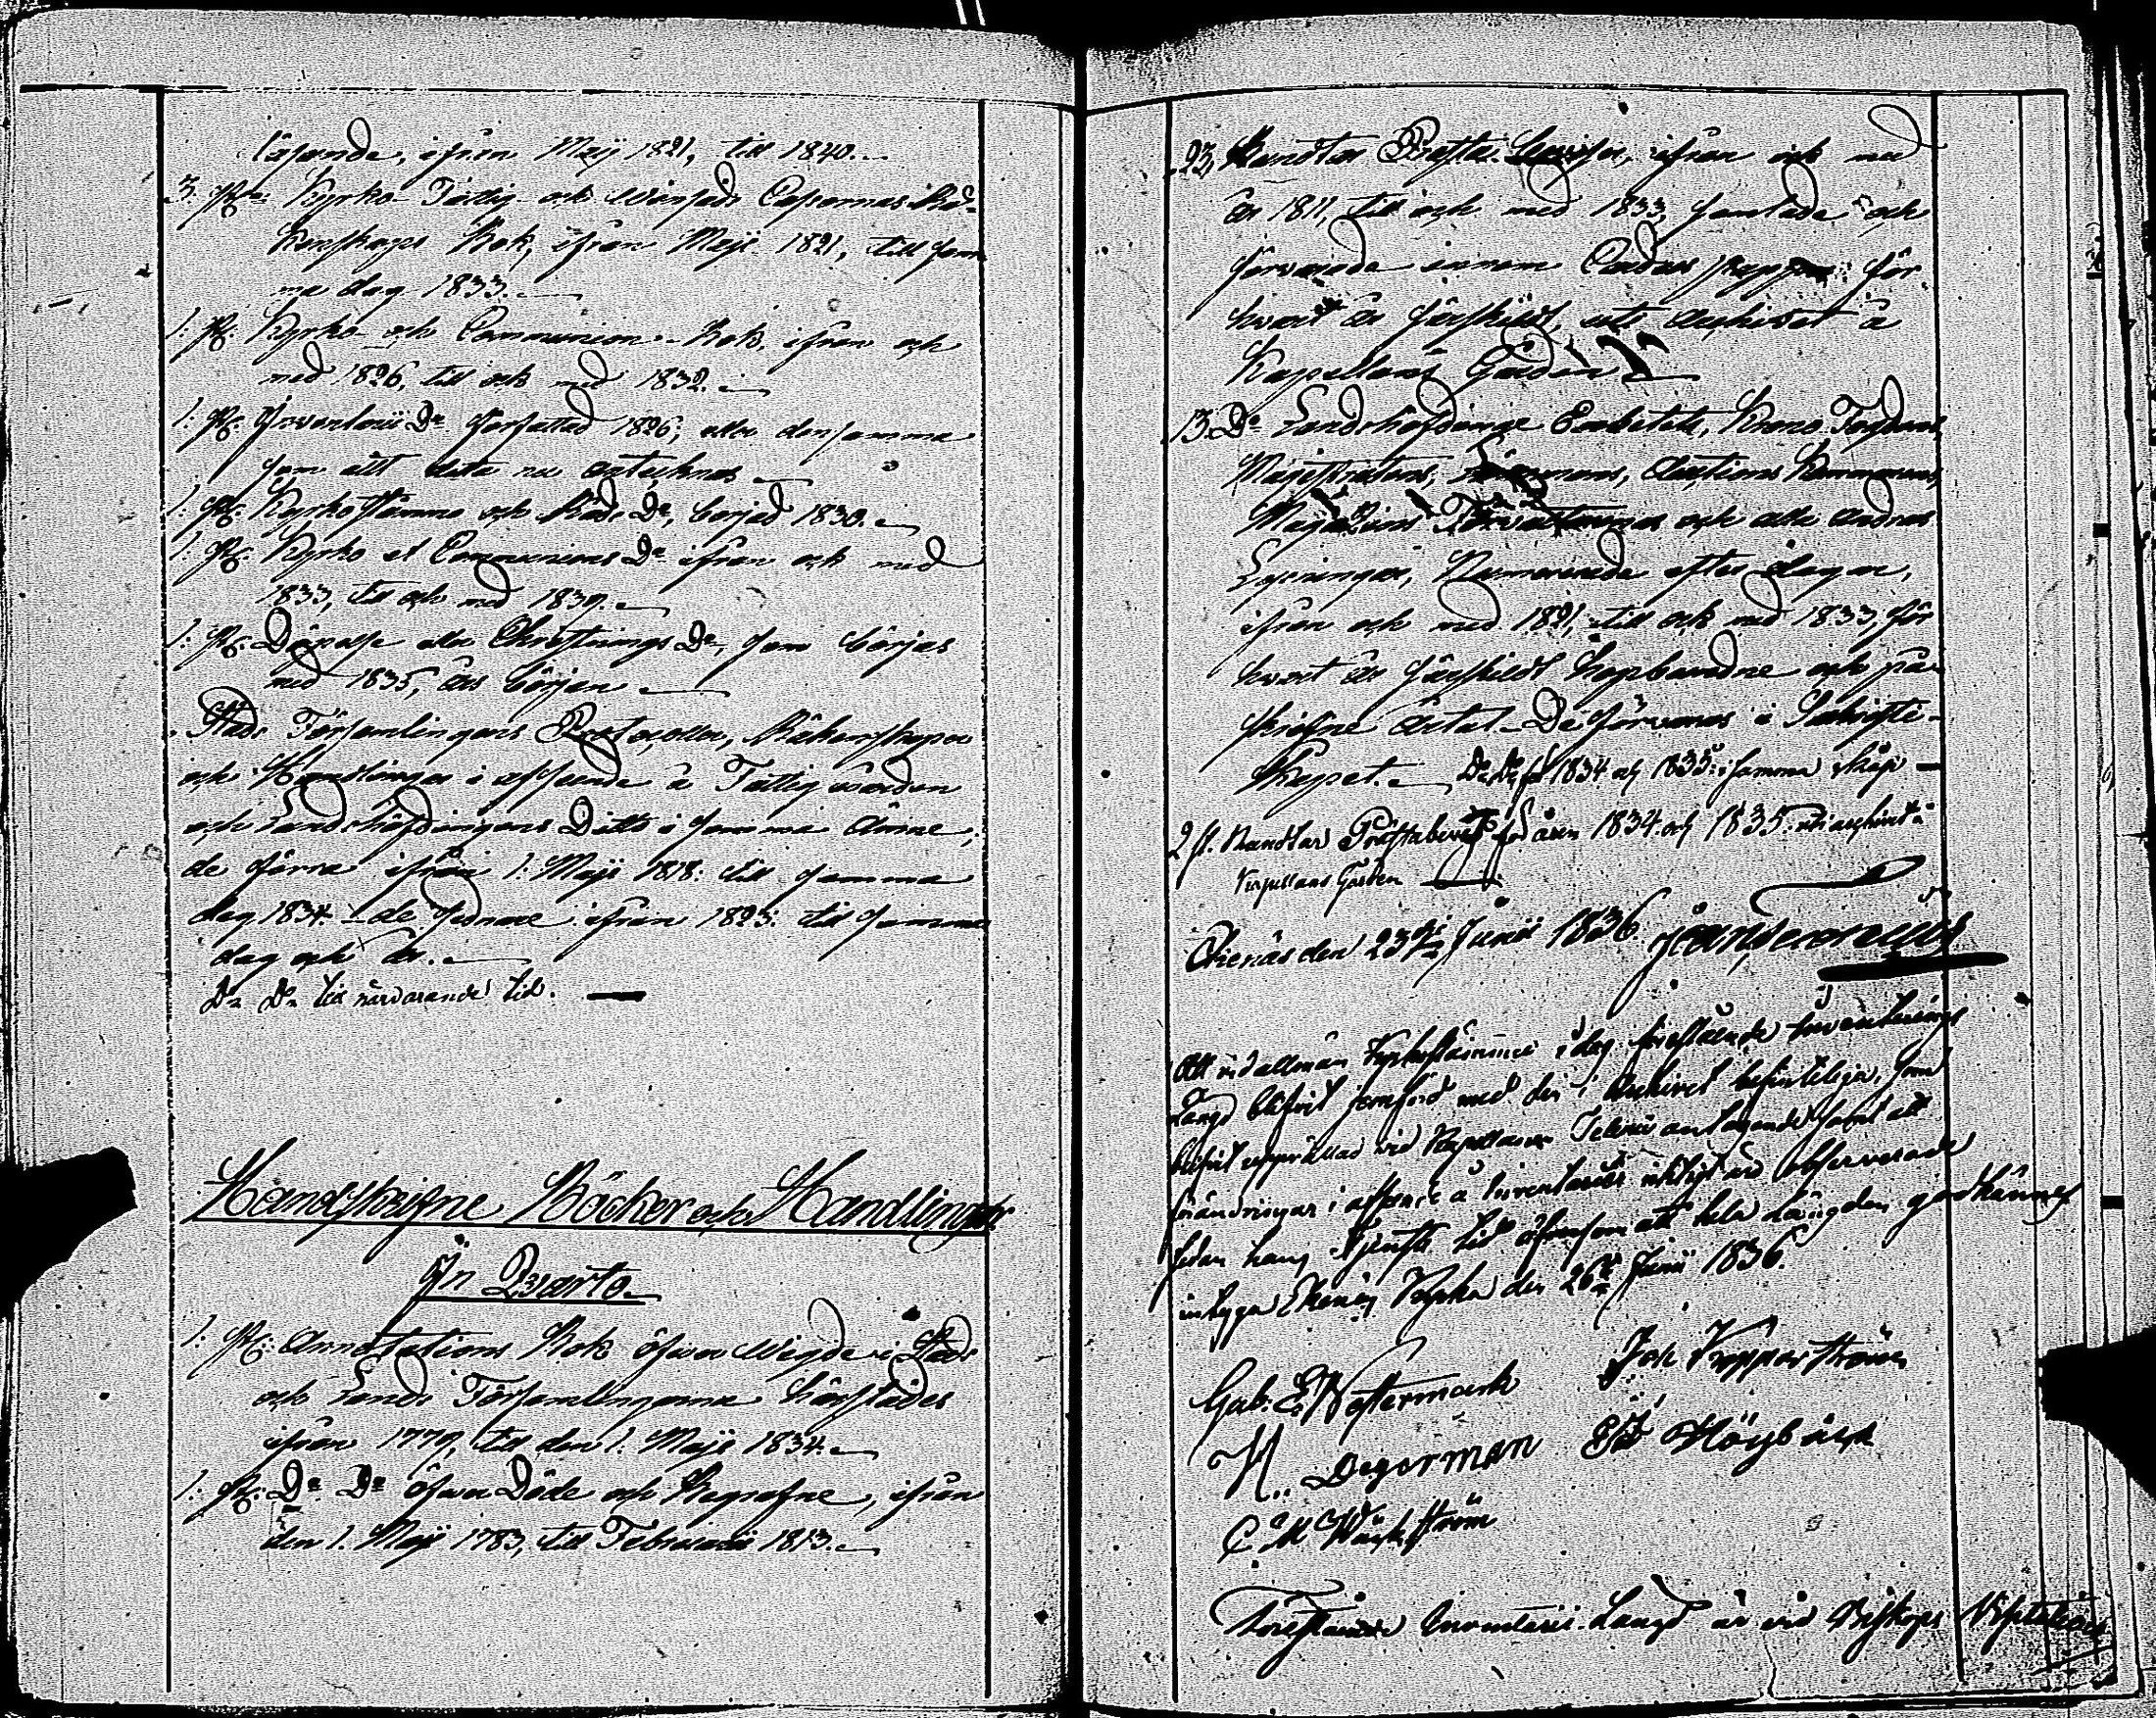 läsande, ifrån Maji 1821, till 1840.
3. st. Kyrko- Fattig- och Cassornas Rä-
kenskaps Bok, ifrån Maji 1821, till sam
ma dag 1833.
1. st. Kyrko- och Communion-Bok, ifrån och
med 1826, till och med 1832.
1. st. Inventarii Do författad 1826, eller densamma
som allt detta nu antecknas
1. st. Kyrkostämmo och Råds Do, börjad 1830.
1. st. Kyrko et Communions Do ifrån och med
1833, till och med 1839.
1. st. Döpelse eller Christnings Do, som börjas
med 1835, års början
Stads Församlingens Protocoller, Räkenskaper
och Handlingar i afseende å Fattigvården
och Landshöfdingens Ditto i samma ämne,
de förra ifrån 1. Maji 1818: till samma
dag 1834. de sednare ifrån 1823: till samma
dag och år.
Do Do till närvarande tid.
Handskrifne Böcker och Handlingar
In Quarto.
1. st. Annotations Bok öfwer Wigde i Stads
och Lands Församlingarna härstädes
ifrån 1779, till den 1. Maji 1834.
1. st. Do Do öfwer Döde och Begrafne, ifrån
den 1. Maji 1783, till Februarii 1813.
23. Bundtar Prestabewiser, ifrån och med
år 1811, till och med 1833, samlade och
förvarade innom för
hvart år särskildt, uti Archivet å
Kapellans Gården
13. Do Landshöfdinge Embetets, Krono Fogdens,
Magistratens, Auctions Kammarens,
Magazins Förvaltarnes och alla andras
Lysningar, Numrerade efter dagar,
ifrån och med 1821, till och med 1833, för
hvart år särskildt hopbundne och på-
skrifne årtal. De förvaras i Sakristi-
Skåpet. Do Do för 1834 och 1835 i samma skåp
2 st. Bundtar Prästabevis för åren 1834 och 1835 uti archivet å
Kapellans Gården
Ekenäs den 23dje Junii 1836.
Att vid allmän Kyrkostämma i dag förestående Inventarii
Längd blifvit jemförd med den i Archivet befintliga, som
blifvit upprättad vid Kapellanen antagande samt att
förändringar i afseende å Inventarier riktigt äro observerade
sedan hans tjenste tid äfvensom att hela Längden godkännes
intyga Ekenäs Kyrka den 26te Junii 1836.
Gab. E. Westermark Joh Kopparström
H. Degerman Högbäck
C M Wäckström
Förestående Inventarii-Längd är vid Biskops Visitation